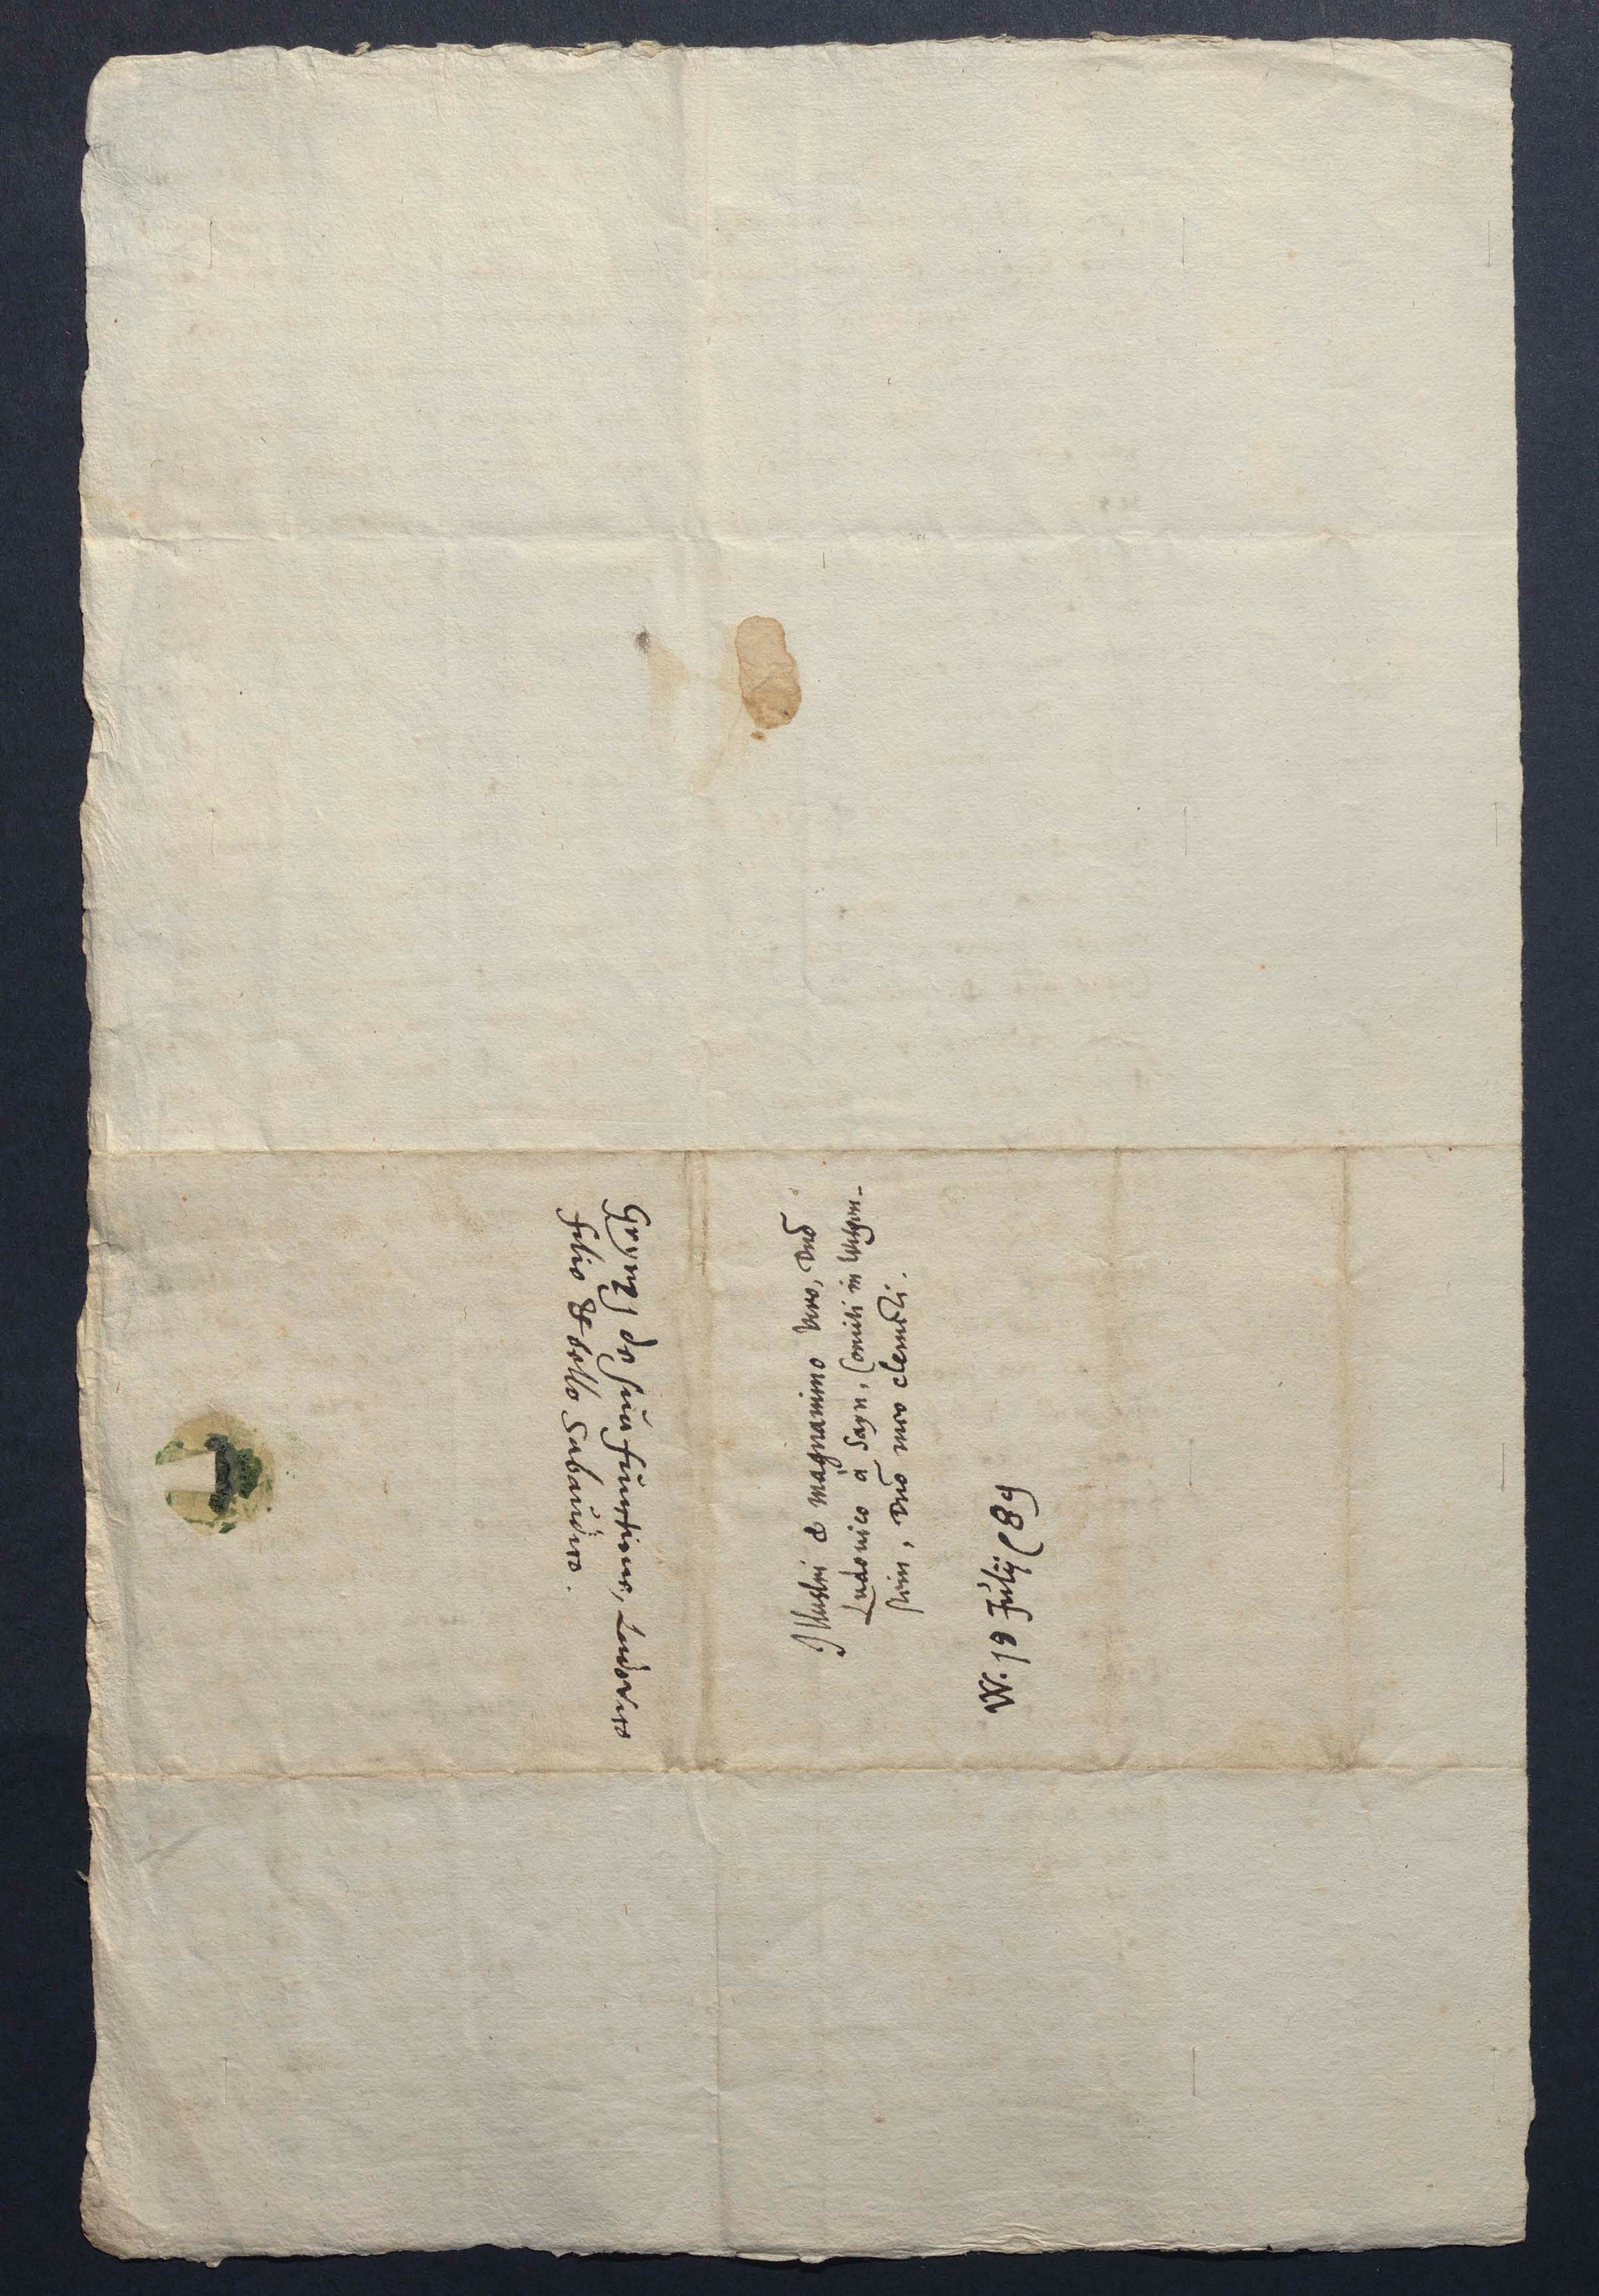 Illustri & magnanimo viro, dnō
Ludovico à Sayn, Comiti in Witgen-
stein, dnō meo clementi.
W. 19 Julij 89
Grynaei de suis fluctibus, Ludovico
filio & bello Sabaudico.